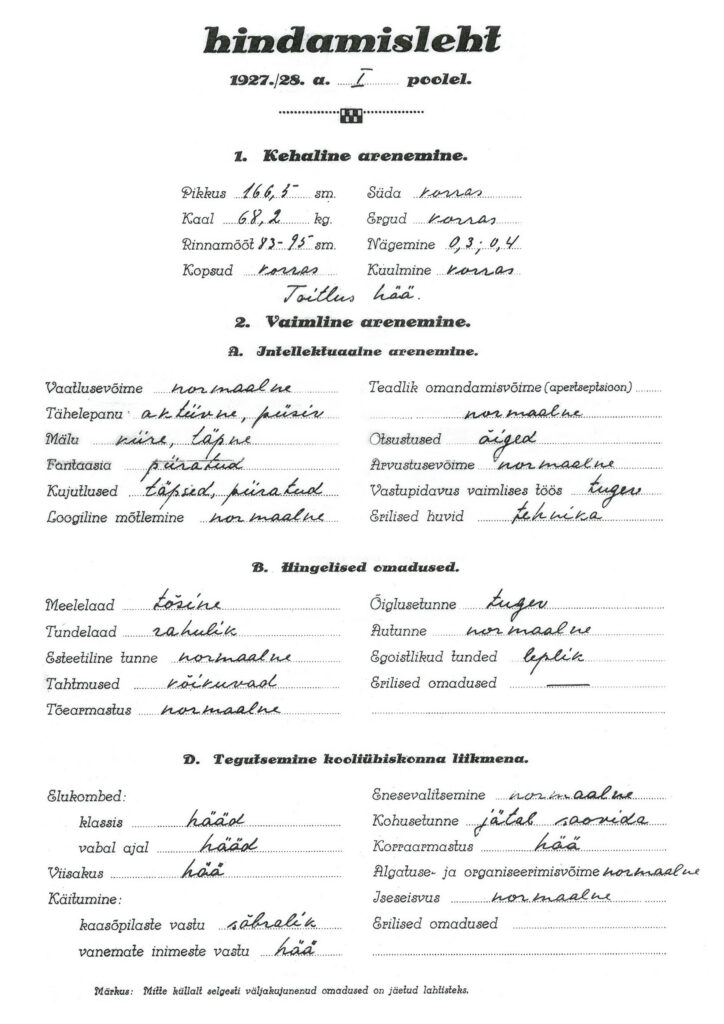 hindamisleht
1927./28. a. I poolel.
1. Kehaline arenemine.
Pikkus 166,5 sm.
Kaal 68,2 kg.
Rinnamõõt 83-95 sm.
Kopsud korras
Süda korras
Ergud korras
Nägemine 0,3; 0,4
Kuulmine korras
Toitlus hää.
2. Vaimline arenemine.
A. Intellektuaalne arenemine.
Vaatlusevõime normaalne
Tähelepanu aktiivne, püsiv
Mälu kiire, täpne
Fantaasia piiratud
Kujutlused täpsed, piiratud
Loogiline mõtlemine normaalne
Teadlik omandamisvõime (apertseptsioon)
normaalne
Otsustused õiged
Arvustusevõime normaalne
Vastupidavus vaimlises töös tugev
Erilised huvid tehnika
B. Hingelised omadused.
Meelelaad tõsine
Tundelaad rahulik
Esteetiline tunne normaalne
Tahtmused kõikuvad
Tõearmastus normaalne
Õiglusetunne tugev
Autunne normaalne
Egoistlikud tunded leplik
Erilised omadused —
D. Tegutsemine kooliühiskonna liikmena.
Elukombed:
klassis hääd
vabal ajal hääd
Viisakus hää
Käitumine:
kaasõpilaste vastu sõbralik
vanemate inimeste vastu hää
Enesevalitsemine normaalne
Kohusetunne jätab soovida
Korraarmastus hää
Algatuse- ja organiseerimisvõime normaalne
Iseseisvus normaalne
Erilised omadused
Märkus: Mitte küllalt selgesti väljakujunenud omadused on jäetud lahtisteks.